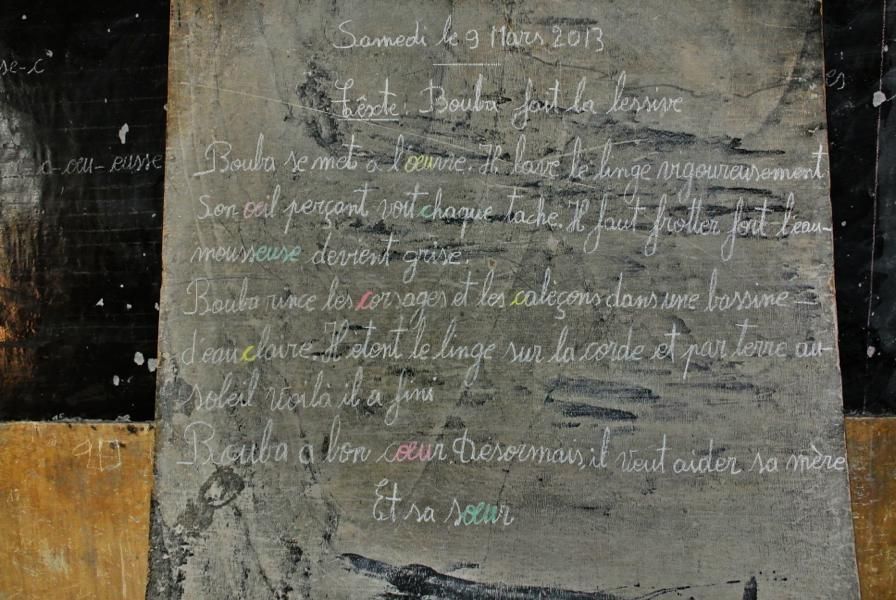 Samedi le 9 Mars 2013
Têxte: Bouba fait la lessive
Bouba se met à l'œuvre. Il lave le linge vigoureusement
Son œil perçant voit chaque tache. Il faut frotter fort l'eau-
mousseuse devient grise.
Bouba rince les corsages et les caleçons dans une bassine -
d'eau claire. Il etent le linge sur la corde et par terre au-
soleil voilà il a fini
Bouba a bon cœur. Désormais, il veut aider sa mère
Et sa sœur
se-c
es
c-œu-eusse